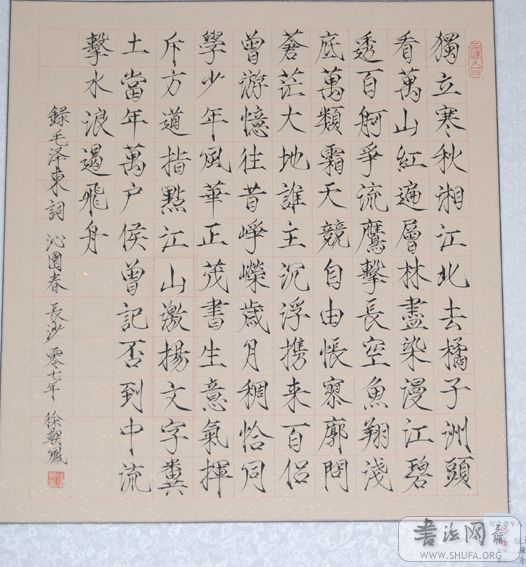 獨立寒秋湘江北去橘子洲頭
看萬山紅遍層林盡染漫江碧
透百舸爭流鷹擊長空魚翔淺
底萬類霜天競自由悵寥廓問
蒼茫大地誰主沉浮携来百侣
曾游憶往昔崢嶸歲月稠恰同
學少年風華正茂書生意氣揮
斥方遒指點江山激揚文字糞
土當年萬户侯曾記否到中流
擊水浪遏飛舟
録毛泽東詞 沁園春 長沙 零七年 徐
書法网
WWW.SHUFA.ORG